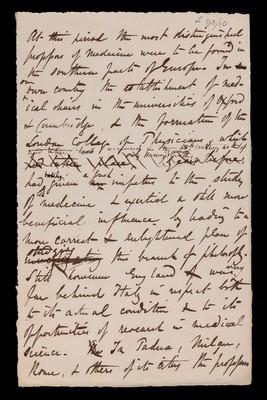 90/10
At this period the most distinguished
professors of medicine were to be found in
the southern parts of Europe. In
our
own country the establishment of med-
ical chairs in the universities of Oxford
& Cambridge, & the formation of the
London College of Physicians, which
had taken place
had lately given a fresh impetus to the study
of medicine & exerted a still more
beneficial influence by leading to a
more correct & enlightened plan of
studying
this branch of philosophy.
Still however England was very
far behind Italy in respect both
to its actual condition & to its
opportunities of research in medical
science. In Padua, Milan,
Rome, & others of its cities the professors